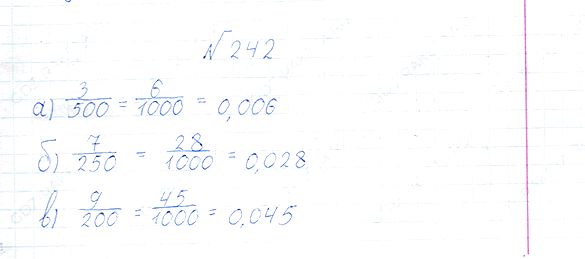 №242
а) 3/500 = 6/1000 = 0,006
б) 7/250 = 28/1000 = 0,028
в) 9/200 = 45/1000 = 0,045